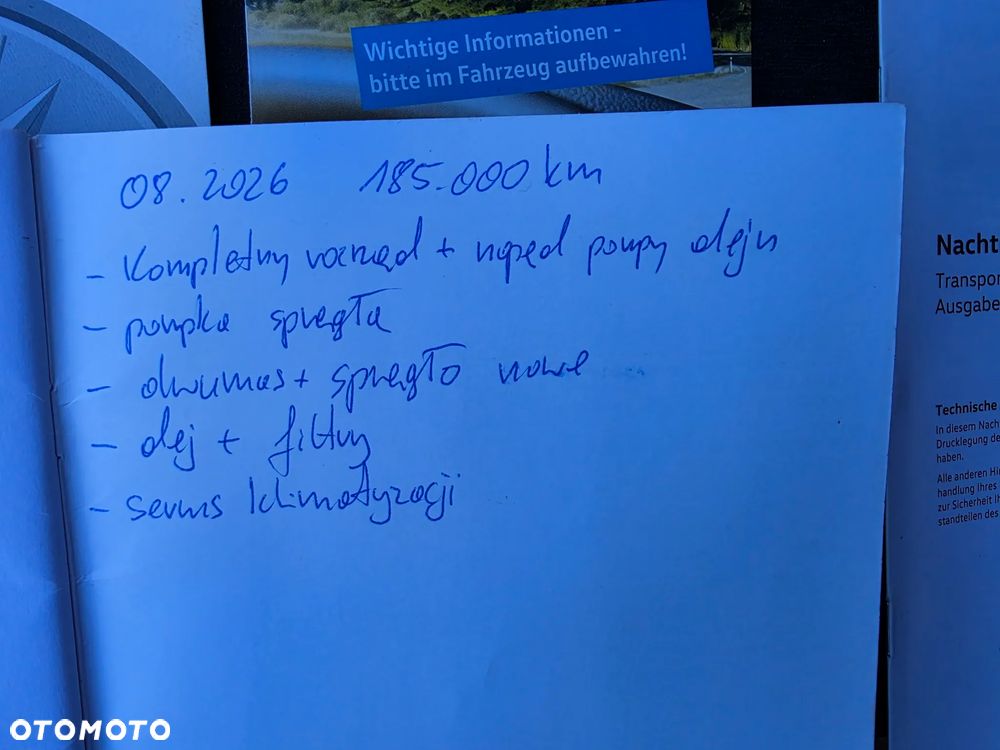 Wichtige Informationen -
bitte im Fahrzeug aufbewahren!
08.2026 185.000 km
- Kompletny rozrząd + napęd pompy oleju
- pompka sprzęgła
- dwumas + sprzęgło nowe
- olej + filtry
- serwis klimatyzacji
Nacht
Transpor
Ausgabe
Technische
In diesem Nach
Drucklegung de
haben.
Alle anderen Hi
handlung Ihres
zur Sicherheit Ih
standteilen des
OTOMOTO